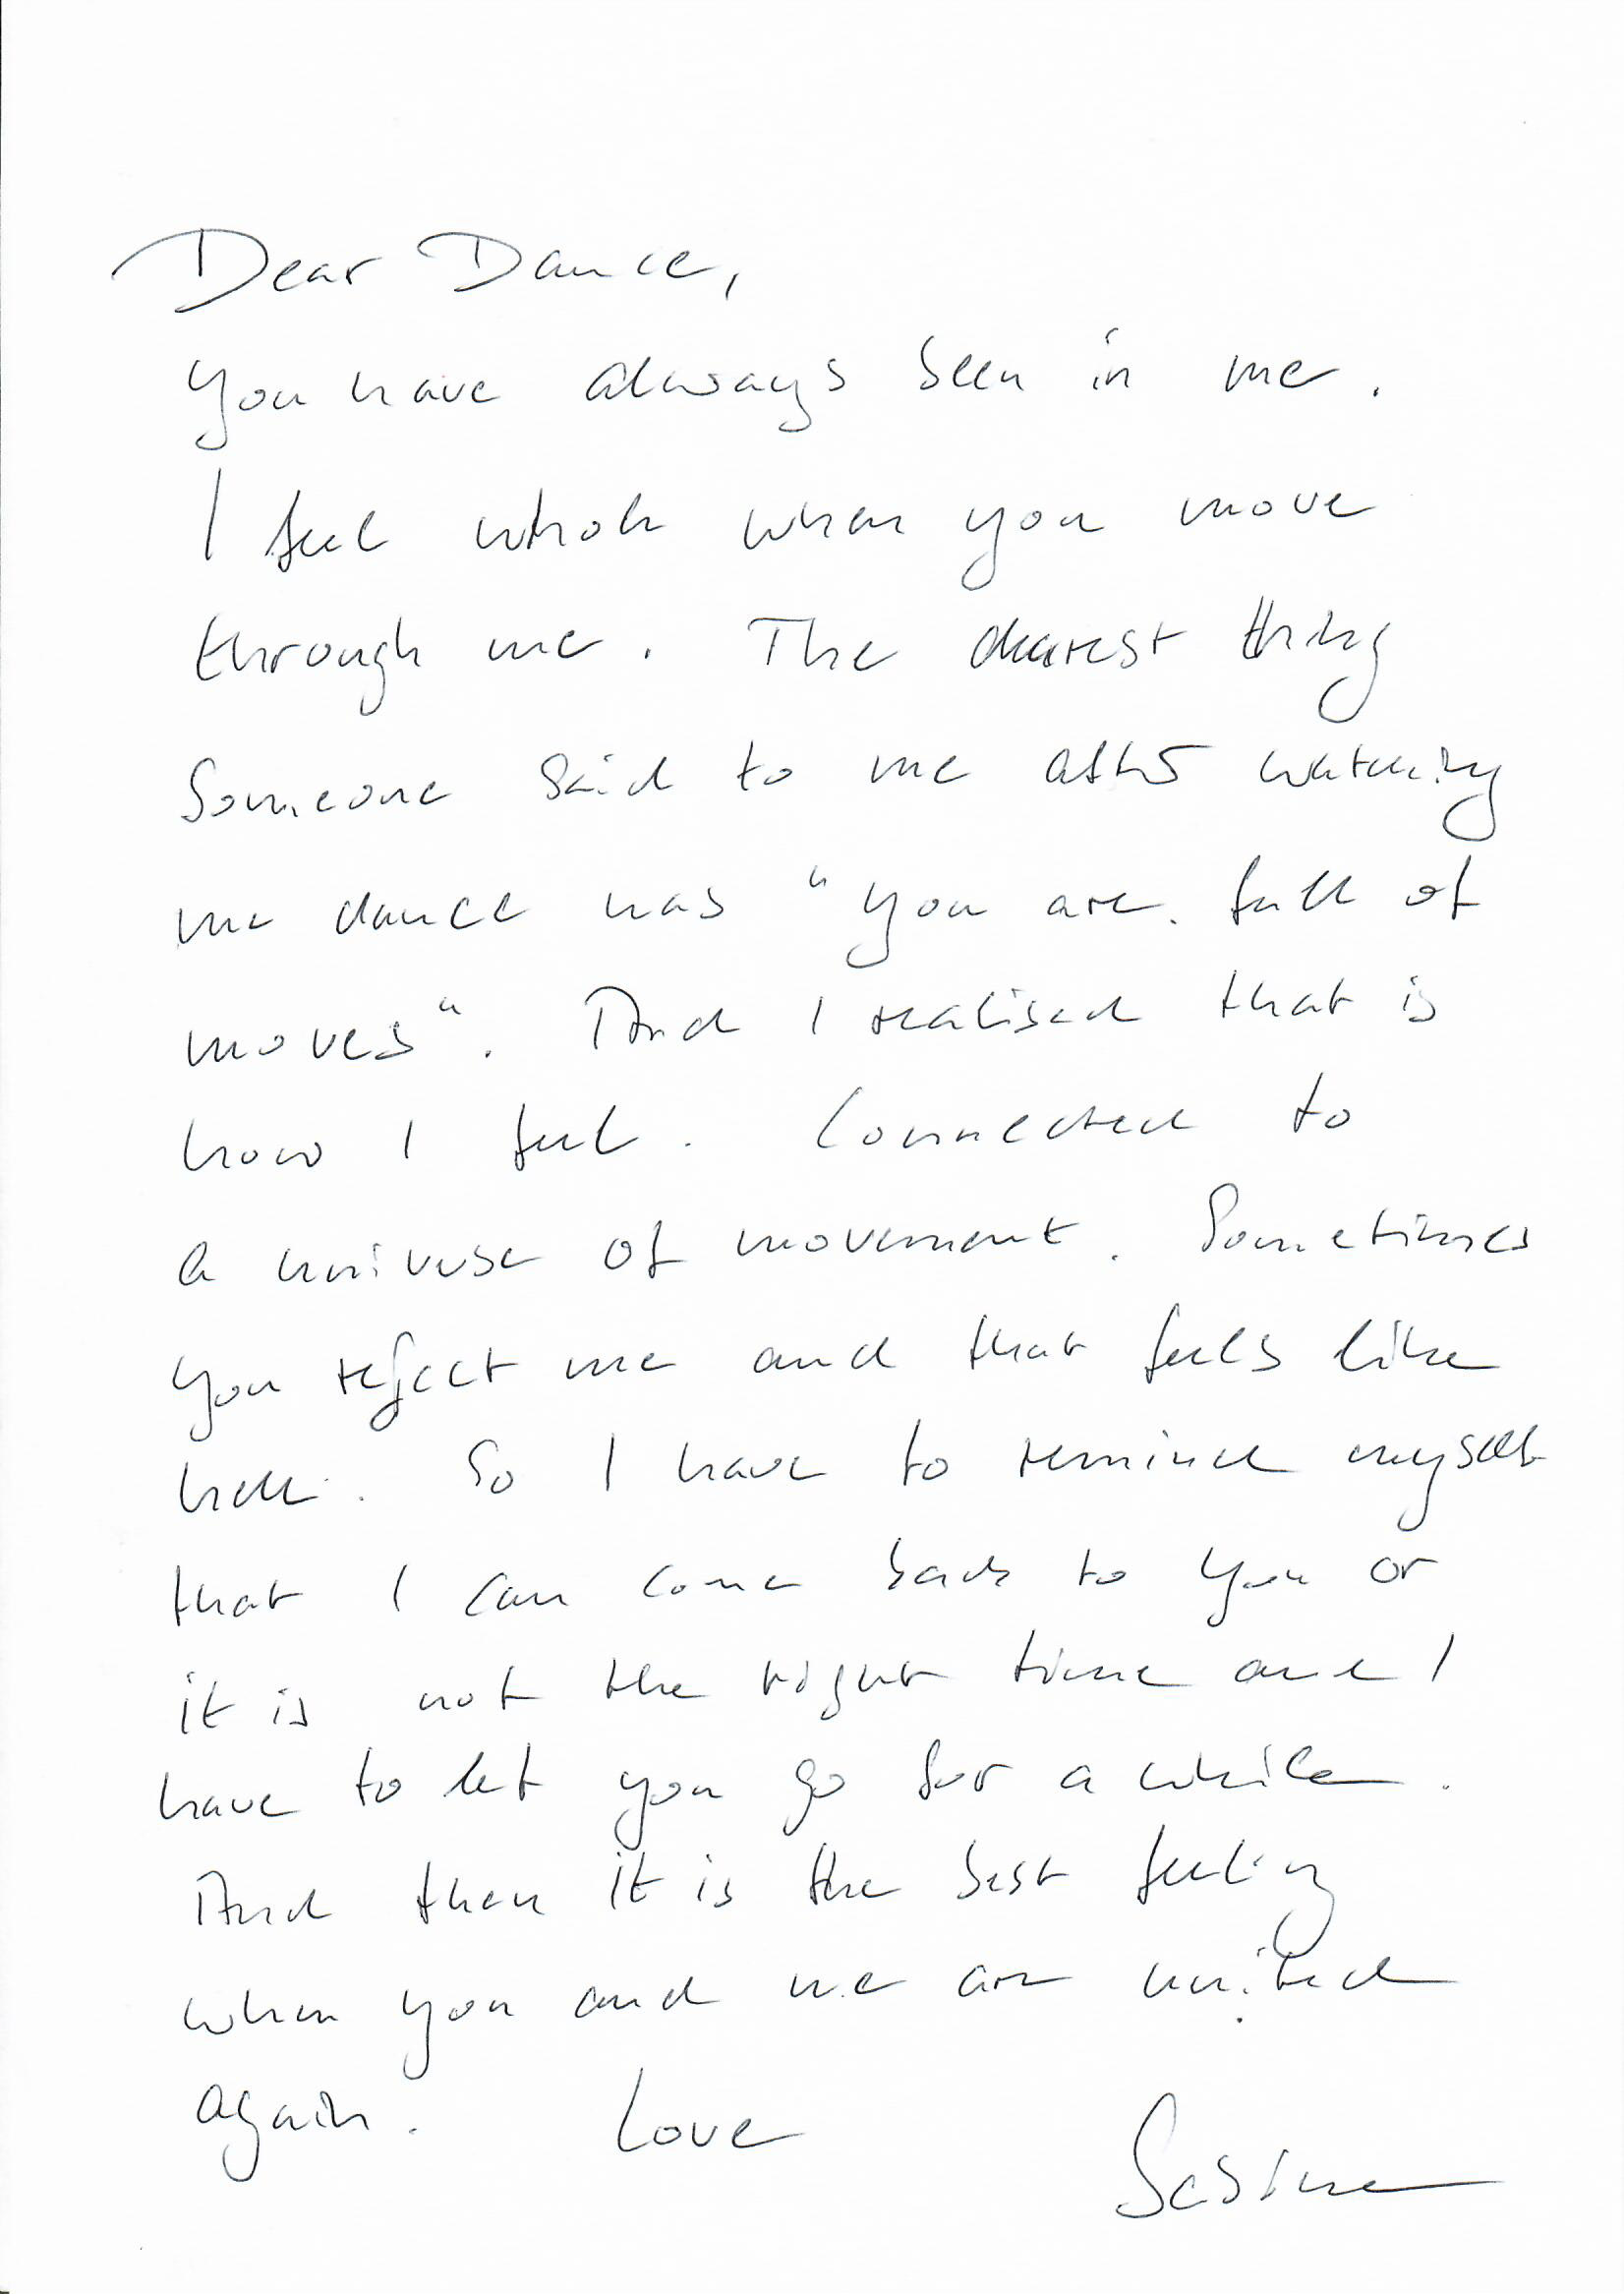 Dear Dance,
you have always been in me.
I feel whole when you move
through me. The dearest thing
someone said to me after watching
me dance was "you are full of
moves". And I realised that is
how I feel. Connected to
a universe of movement. Sometimes
you reject me and that feels like
hell. So I have to remind myself
that I can come back to you or
it is not the right time and I
have to let you go for a while.
And then it is the best feeling
when you and me are united
again. Love
Sabine